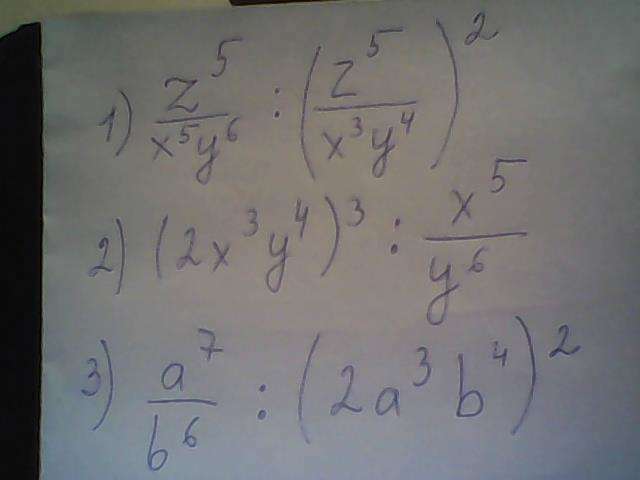 1) z^5/(x^5y^6) : (z^5/(x^3y^4))^2
2) (2x^3y^4)^3 : x^5/y^6
3) a^7/b^6 : (2a^3b^4)^2